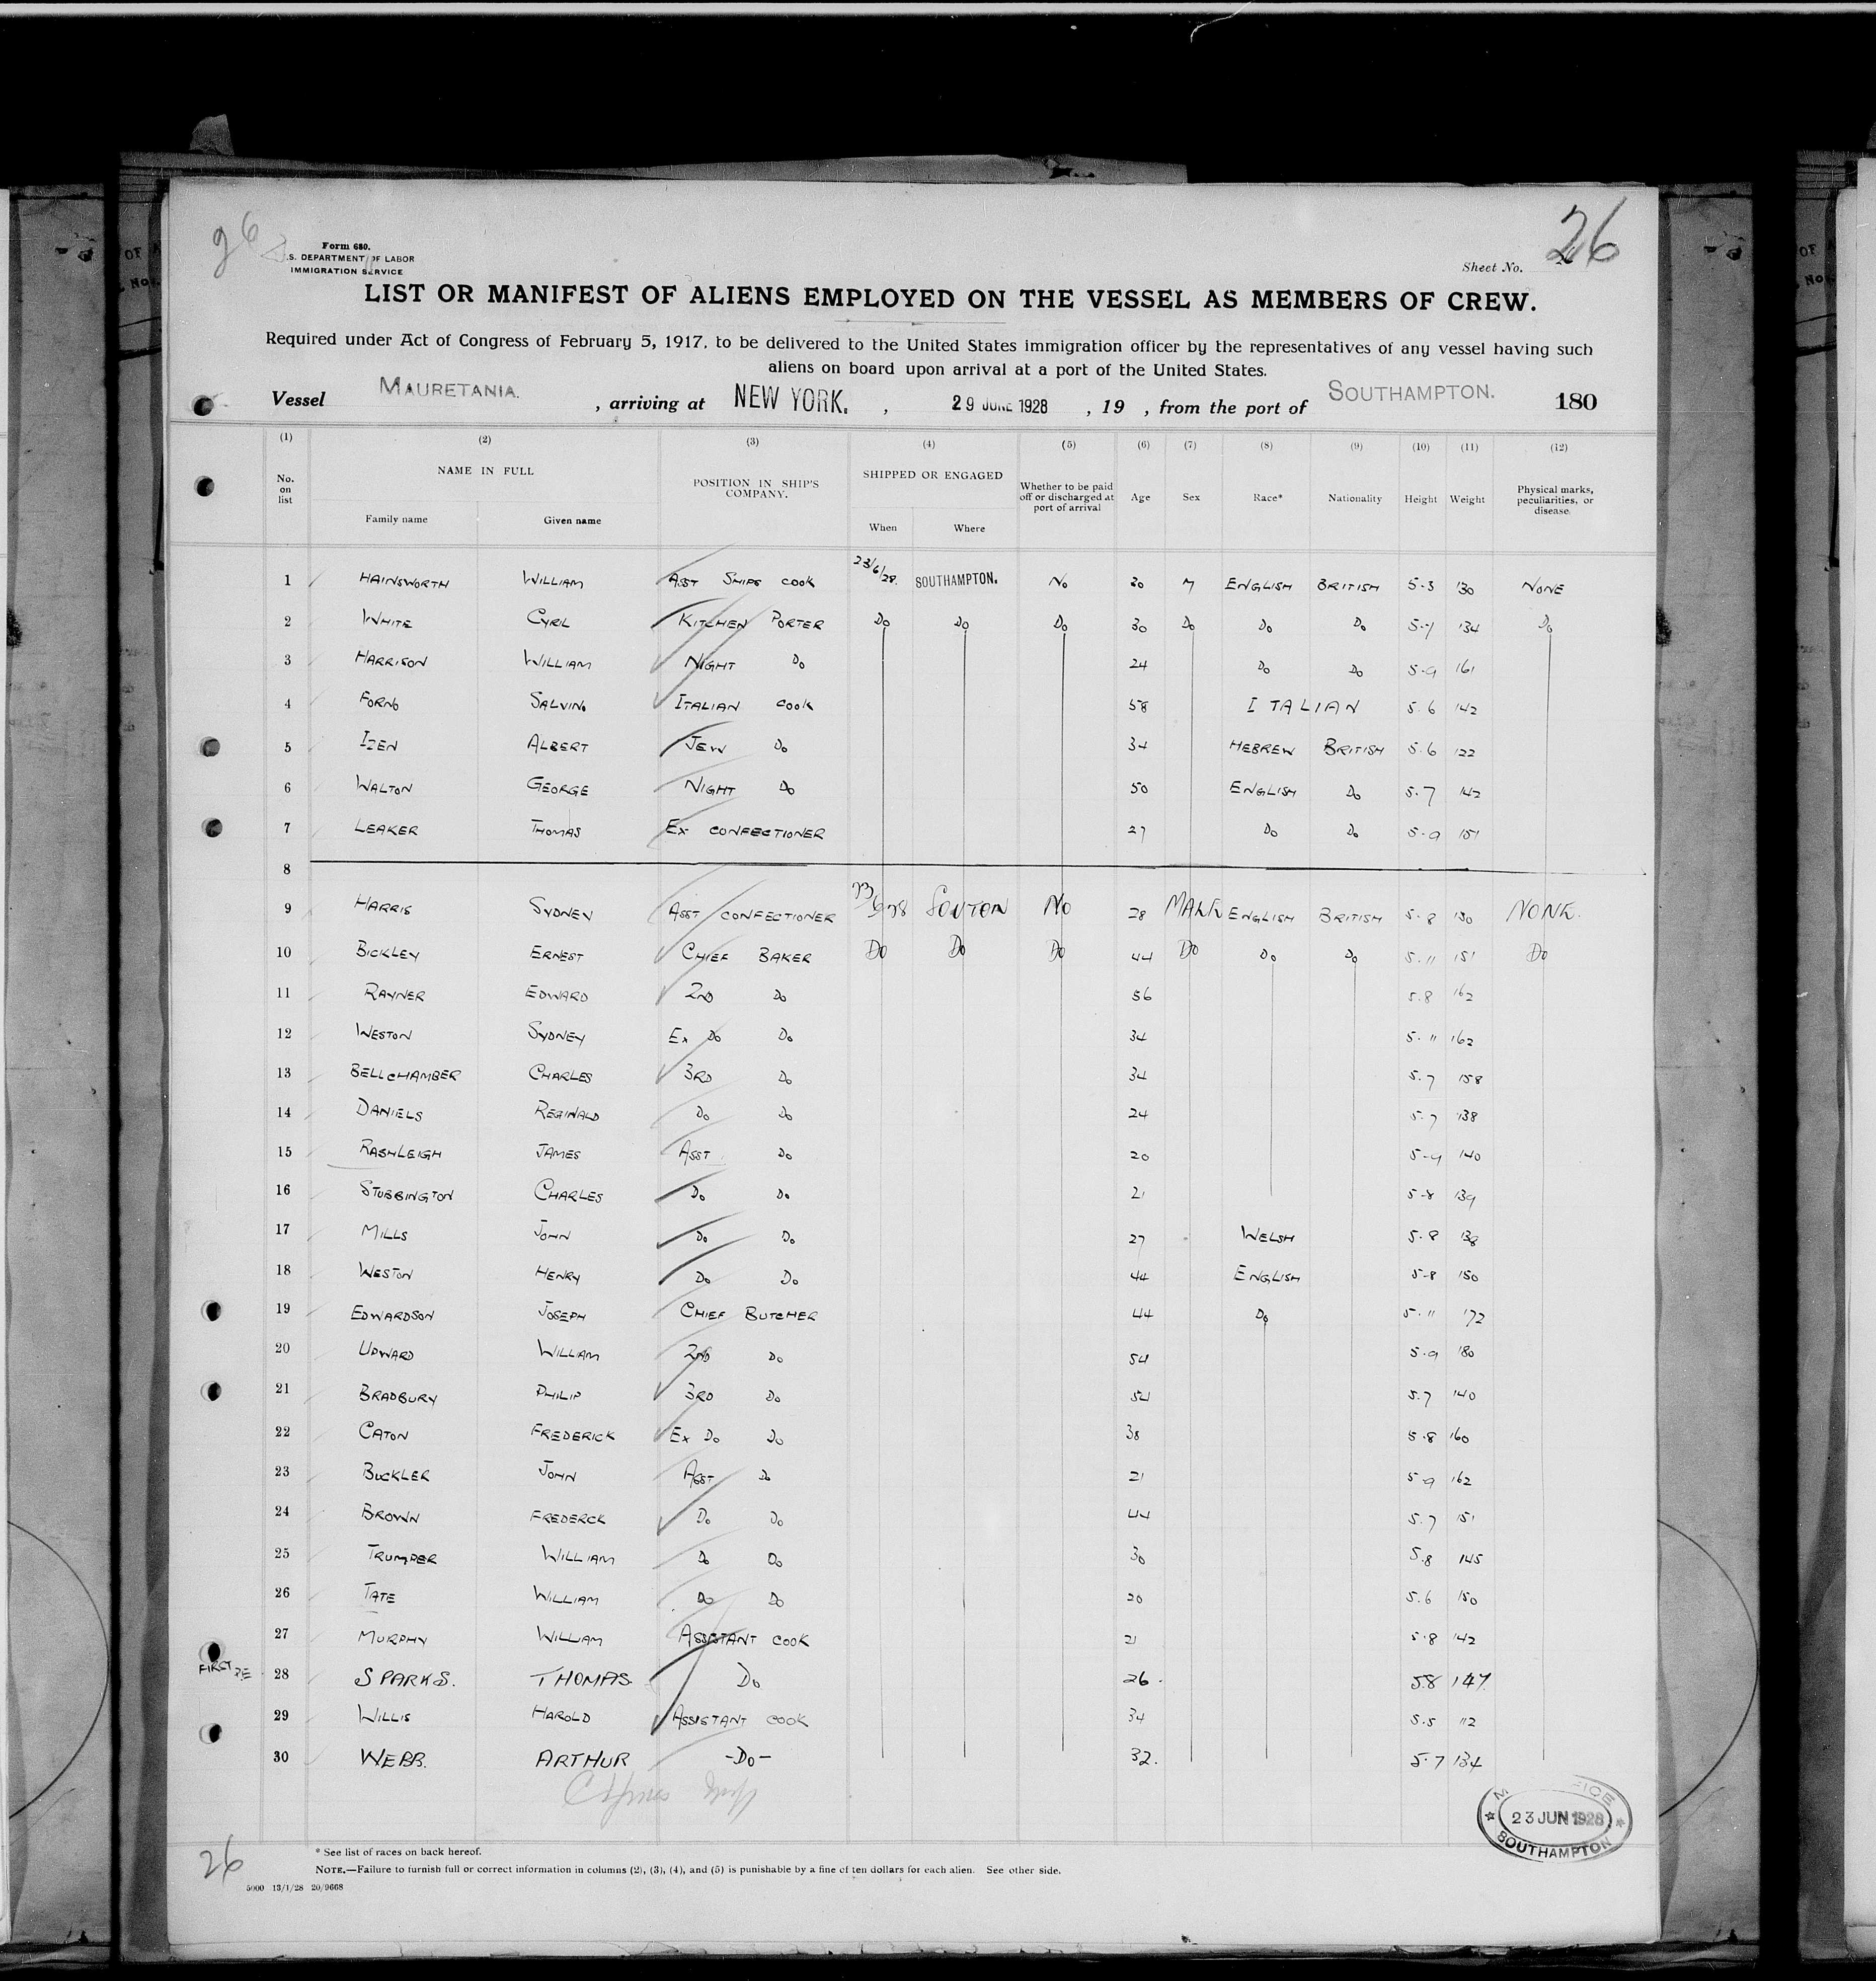 26
26
Form 680.
.S. DEPARTMENT OF LABOR
IMMIGRATION SERVICE
Sheet No.
LIST OR MANIFEST OF ALIENS EMPLOYED ON THE VESSEL AS MEMBERS OF CREW.
Required under Act of Congress of February 5, 1917, to be delivered to the United States immigration officer by the representatives of any vessel having such
aliens on board upon arrival at a port of the United States.
Vessel MAURETANIA. , arriving at NEW YORK. , 29 JUNE 1928 , 19 , from the port of SOUTHAMPTON. 180
(1) (2) (3) (4) (5) (6) (7) (8) (9) (10) (11) (12)
No. on list NAME IN FULL POSITION IN SHIP'S COMPANY. SHIPPED OR ENGAGED Whether to be paid off or discharged at port of arrival Age Sex Race* Nationality Height Weight Physical marks, peculiarities, or disease
Family name Given name When Where
1 HAINSWORTH WILLIAM ASST SHIPS COOK 23/6/28. SOUTHAMPTON. NO 30 M ENGLISH BRITISH 5-3 130 NONE
2 WHITE CYRIL KITCHEN PORTER DO DO DO 30 DO DO DO 134 DO
3 HARRISON WILLIAM NIGHT DO 24 DO DO 5-9 161
4 FORNO SALVINO ITALIAN COOK 58 ITALIAN 5.6 142
5 IZEN ALBERT JEW DO 34 HEBREW BRITISH 5.6 122
6 WALTON GEORGE NIGHT DO 50 ENGLISH DO 5.7 142
7 LEAKER THOMAS EX CONFECTIONER 27 DO DO 5-9 151
8
9 HARRIS SYDNEY ASST CONFECTIONER 23/6/28 SOUTON NO 28 MALE ENGLISH BRITISH 5-8 130 NONE.
10 BICKLEY ERNEST CHIEF BAKER DO DO DO 44 DO DO DO 5.11 151 DO
11 RAYNER EDWARD 2ND DO 56 5.8 162
12 WESTON SYDNEY EX DO DO 34 5.11 162
13 BELLCHAMBER CHARLES 3RD DO 34 5.7 158
14 DANIELS REGINALD DO DO 24 5.7 138
15 RASHLEIGH JAMES ASST DO 20 140
16 STUBBINGTON CHARLES DO DO 21 5-8 139
17 MILLS JOHN DO DO 27 WELSH 5.8 138
18 WESTON HENRY DO DO 44 ENGLISH 5-8 150
19 EDWARDSON JOSEPH CHIEF BUTCHER 44 DO 5.11 172
20 UDWARD WILLIAM 2ND DO 54 5.9 180
21 BRADBURY PHILIP 3RD DO 54 5.7 140
22 CATON FREDERICK EX DO DO 38 5.8 160
23 BUCKLER JOHN ASST DO 21 5-9 162
24 BROWN FREDERCK DO DO 44 5.7 151
25 TRUMPER WILLIAM DO DO 30 5.8 145
26 TATE WILLIAM DO DO 20 5.6 150
27 MURPHY WILLIAM ASSISTANT COOK 21 5.8 142
FIRST 28 SPARKS. THOMAS. DO 26. 5.8 147.
29 WILLIS HAROLD ASSISTANT COOK 34 5.5 112
30 WEBB. ARTHUR -DO- 32. 5.7 134
23 JUN 1928
SOUTHAMPTON
26
* See list of races on back hereof.
NOTE.—Failure to furnish full or correct information in columns (2), (3), (4), and (5) is punishable by a fine of ten dollars for each alien. See other side.
5000 13/1/28 20/9668